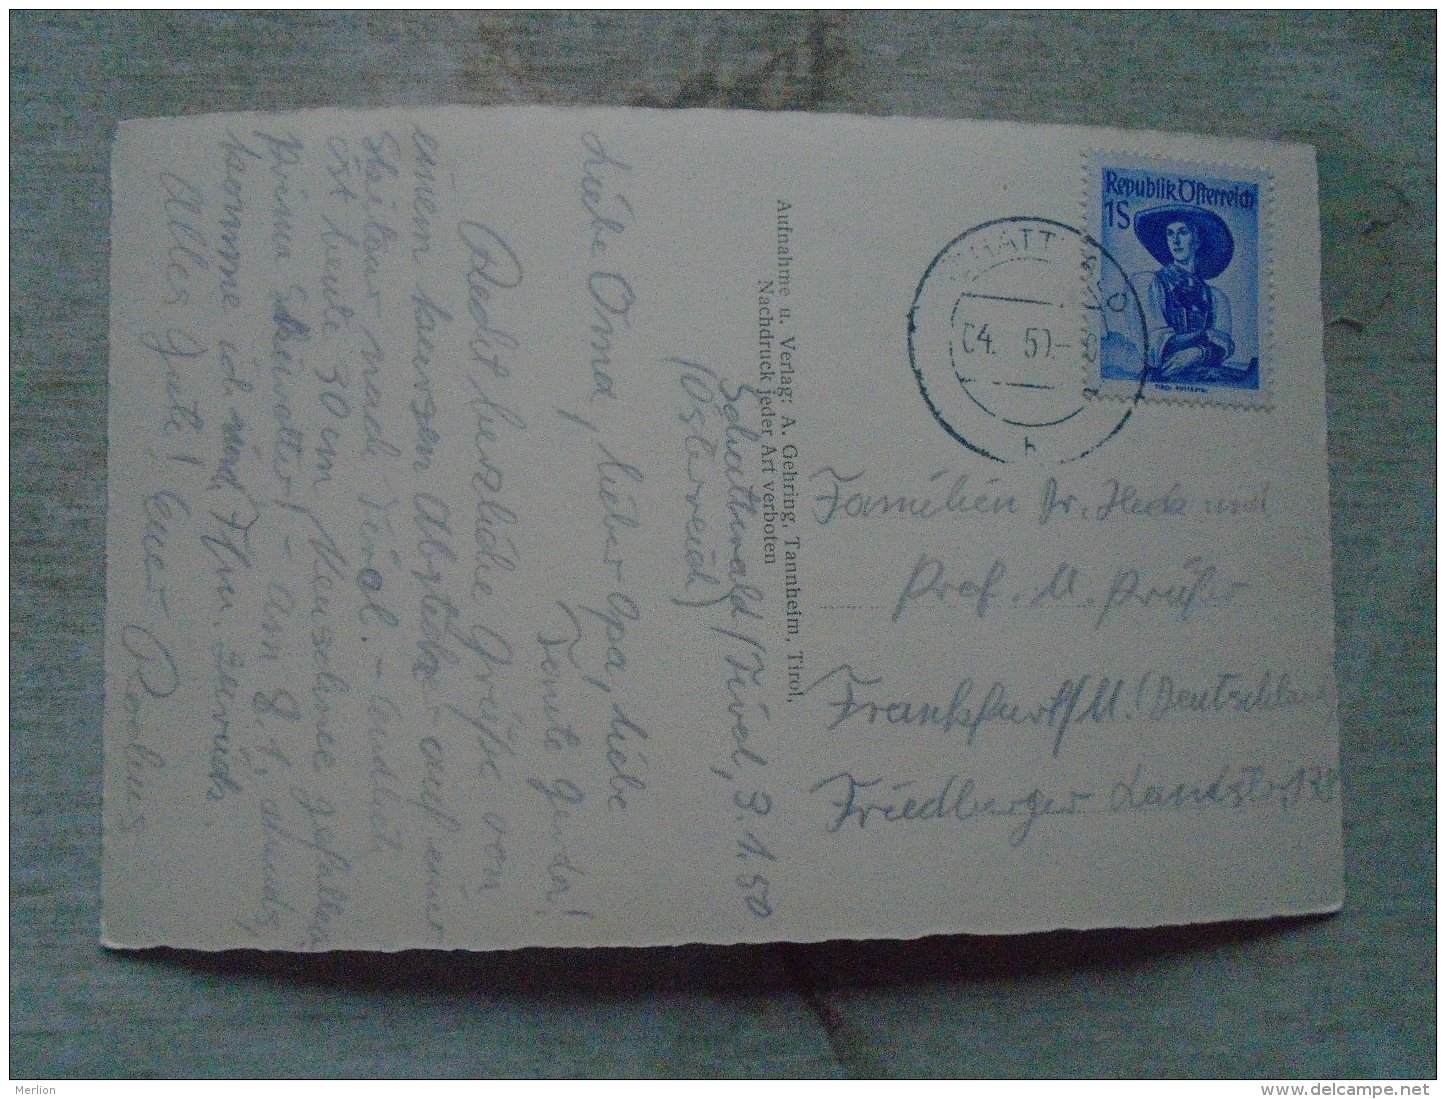 Schattwald/Tirol, 3.1.50
(Österreich)
Liebe Oma, lieber Opa, liebe
Tante Gerda!
Recht herzliche Grüße von
einem kurzen Abstecher auf einer
nach Tirol. -
ist heute 30 cm Neuschnee gefallen
Prima - Am 8.1. abends
komme ich nach Ffm. zurück.
Alles Gute! Euer
Aufnahme u. Verlag: A. Gehring, Tannheim, Tirol,
Nachdruck jeder Art verboten
Republik Österreich
1S
SCHATTWALD
04. 50.
Familien Dr. Heck und
Prof. M. Prüßer
Frankfurt/M. (Deutschland)
Friedberger Landstr.
Merlion
www.delcampe.net